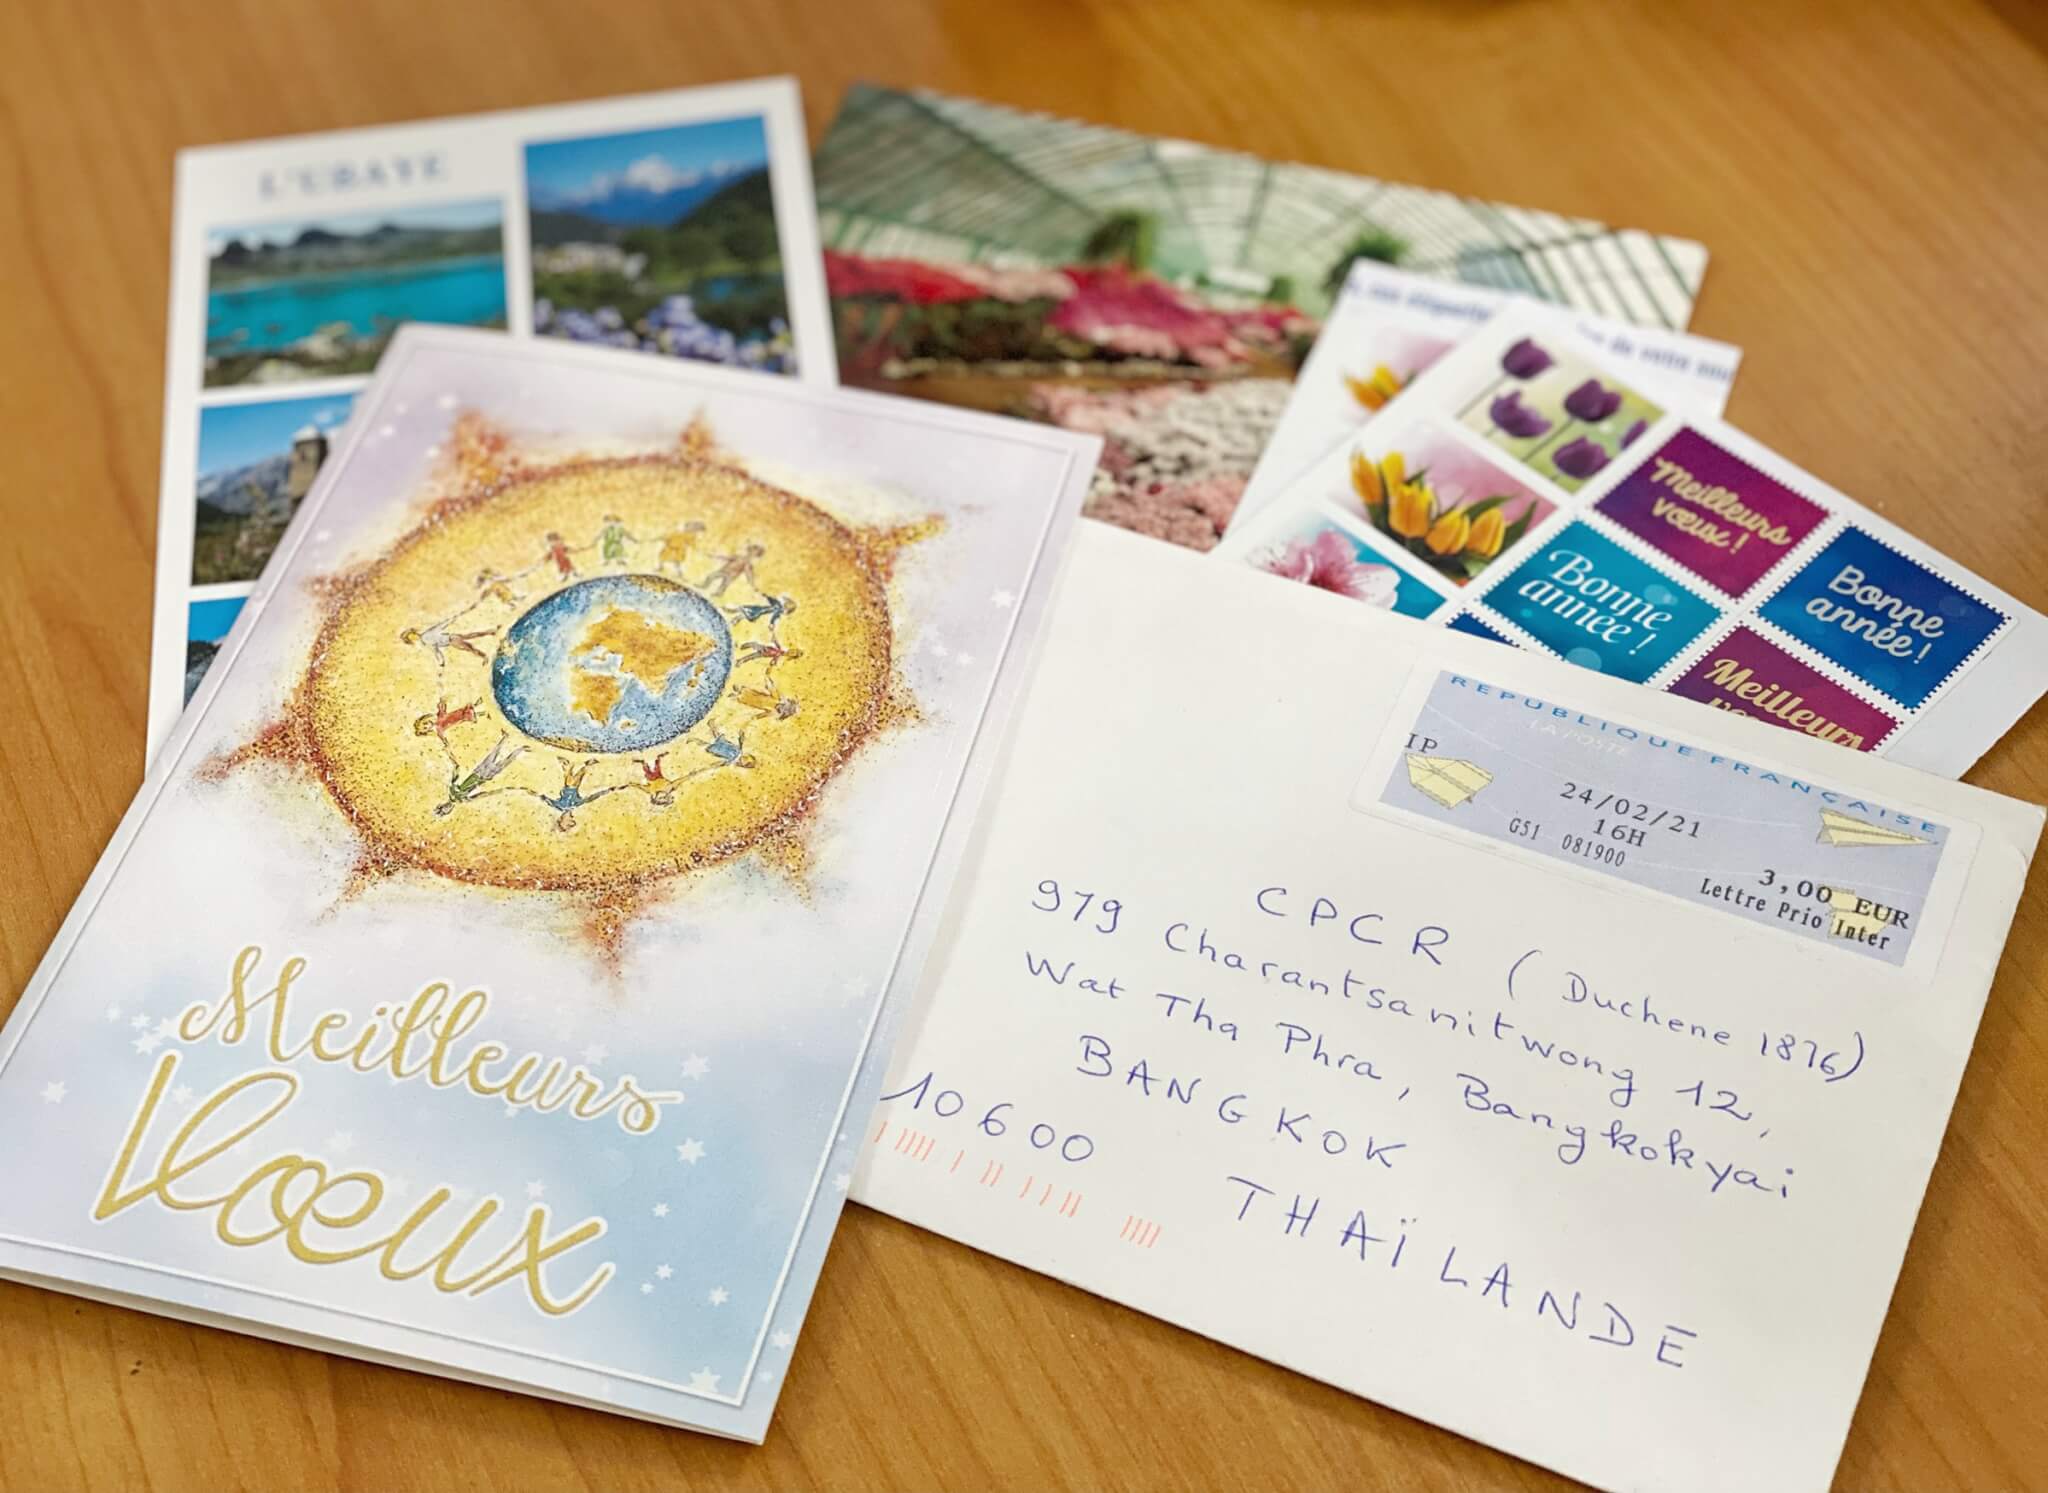 L'UBAYE
Meilleurs
Vœux
de votre
Meilleurs
vœux!
Bonne
année!
Bonne
année!
Meilleurs
REPUBLIQUE FRANÇAISE
LA POSTE
IP
24/02/21
16H
G51 081900
3,00 EUR
Lettre Prio Inter
CPCR (Duchene 1876)
979 Charantsanitwong 12,
Wat Tha Phra, Bangkokyai
BANGKOK
10600
THAÏLANDE